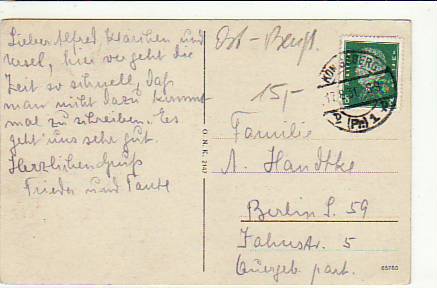 Lieber Alfred Klärchen und
Usel, hier vergeht die
Zeit so schnell, daß
man nicht dazu kommt
mal zu schreiben. Es
geht uns sehr gut.
Herzlichen Gruß
Frieder und Tante
O.N.K. 2147
Ost-
15,-
KÖNIGSBERG
(Pr) 1
Familie
A. Handtke
Berlin S. 59
Jahnstr. 5
Quergeb. part.
65765